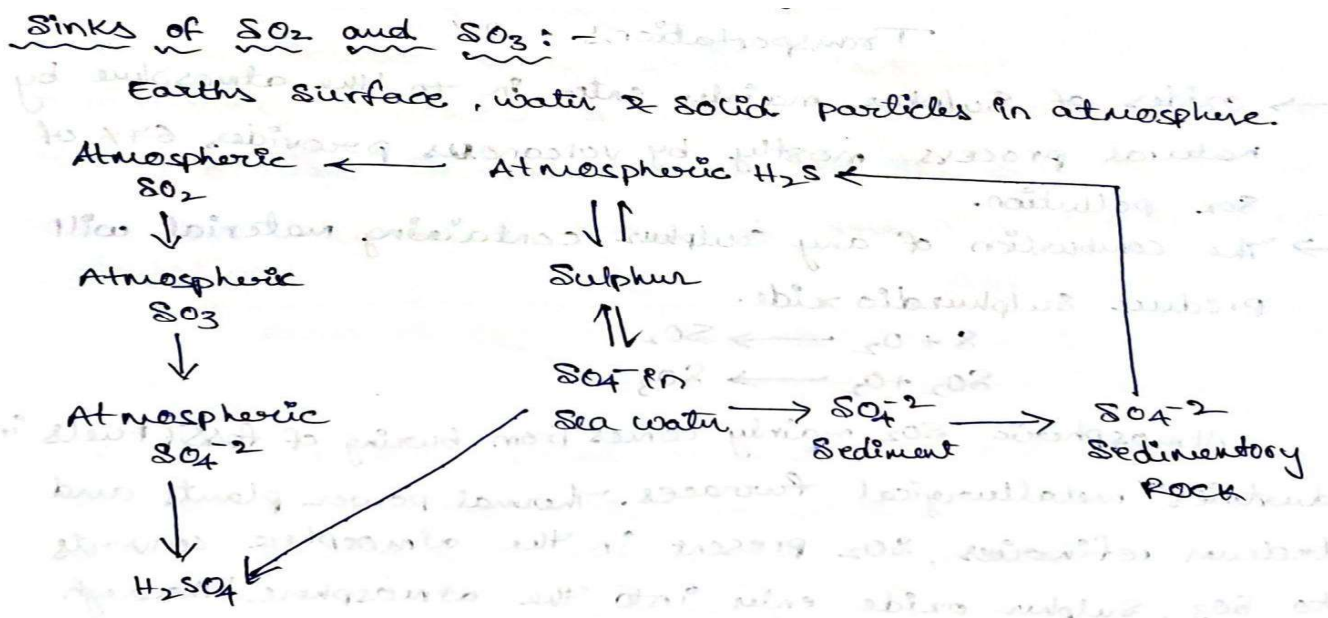 Sinks of SO2 and SO3: -
Earths surface, water & solid particles in atmosphere.
Atmospheric SO2 ← Atmospheric H2S ←
↓ ↓↑
Atmospheric SO3 Sulphur
↓ ↑↓
Atmospheric SO4-2 SO4- in Sea water → SO4-2 Sediment → SO4-2 Sedimentory ROCK
↓
H2SO4